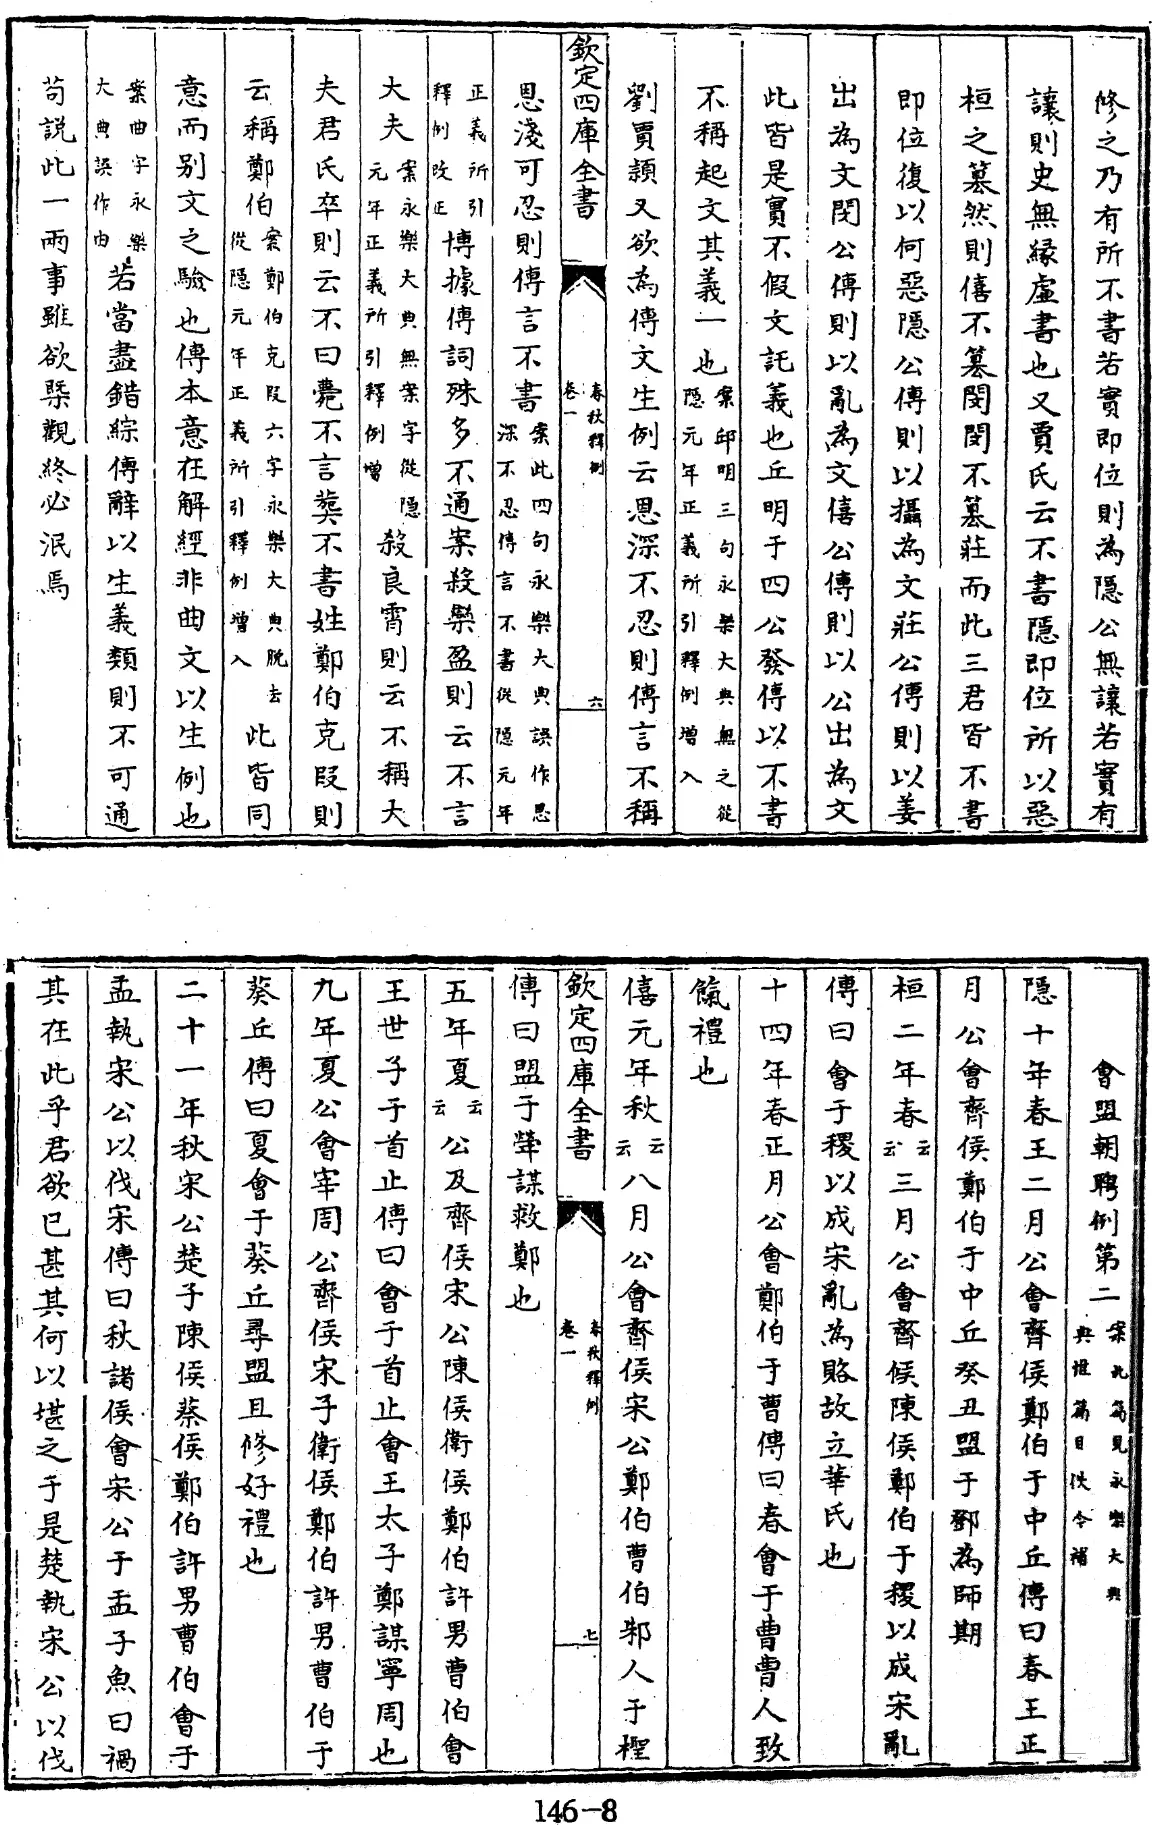 修之乃有所不書若實即位則為隱公無讓若實有
讓則史無縁虛書也又賈氏云不書隱即位所以惡
桓之簒然則僖不簒閔閔不簒莊而此三君皆不書
即位復以何惡隱公傳則以攝為文莊公傳則以姜
出為文閔公傳則以亂為文僖公傳則以公出為文
此皆是實不假文託義也丘明于四公發傳以不書
不稱起文其義一也案邱明三句永樂大典無之從隱元年正義所引釋例增入
劉賈潁又欲為傳文生例云恩深不忍則傳言不稱
恩淺可忍則傳言不書案此四句永樂大典誤作恩深不忍傳言不書從隱元年
欽定四庫全書 春秋釋例 卷一 六
正義所引釋例改正博據傳詞殊多不通案殺欒盈則云不言
大夫案永樂大典無案字從隱元年正義所引釋例增殺良霄則云不稱大
夫君氏卒則云不曰薨不言葬不書姓鄭伯克段則
云稱鄭伯案鄭伯克段六字永樂大典脫去從隱元年正義所引釋例增入此皆同
意而别文之驗也傳本意在解經非曲文以生例也
案曲字永樂大典誤作由若當盡錯綜傳辭以生義類則不可通
苟說此一兩事雖欲槩觀終必泥焉
會盟朝聘例第二案此篇見永樂大典惟篇目佚今補
隱十年春王二月公會齊侯鄭伯于中丘傳曰春王正
月公會齊侯鄭伯于中丘癸丑盟于鄧為師期
桓二年春云云三月公會齊侯陳侯鄭伯于稷以成宋亂
傳曰會于稷以成宋亂為賂故立華氏也
十四年春正月公會鄭伯于曹傳曰春會于曹曹人致
餼禮也
僖元年秋云云八月公會齊侯宋公鄭伯曹伯邾人于檉
欽定四庫全書 春秋釋例 卷一 七
傳曰盟于犖謀救鄭也
五年夏云云公及齊侯宋公陳侯衛侯鄭伯許男曹伯會
王世子于首止傳曰會于首止會王太子鄭謀寧周也
九年夏公會宰周公齊侯宋子衛侯鄭伯許男曹伯于
葵丘傳曰夏會于葵丘尋盟且修好禮也
二十一年秋宋公楚子陳侯蔡侯鄭伯許男曹伯會于
盂執宋公以伐宋傳曰秋諸侯會宋公于盂子魚曰禍
其在此乎君欲已甚其何以堪之于是楚執宋公以伐
146-8